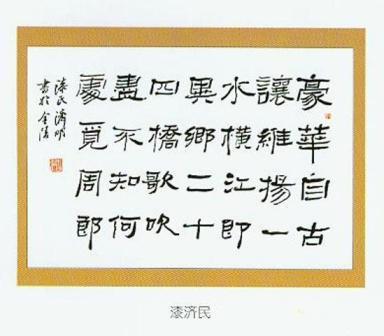 豪華自古
讓維揚一
水橫江即
異鄉二十
四橋歌吹
盡不知何
處覓周郎
漆氏濟明
書於金陵
漆济民